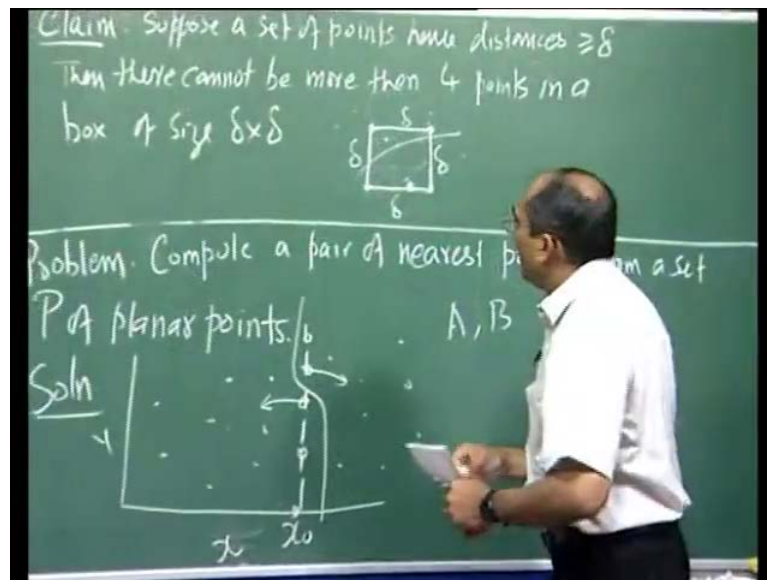 Claim. Suppose a set of points have distances ≥δ
Then there cannot be more then 4 points in a
box of size δxδ
δ
δ
δ
δ
Problem. Compute a pair of nearest a set
P of planar points.
A, B
Soln
b
Y
x
x₀